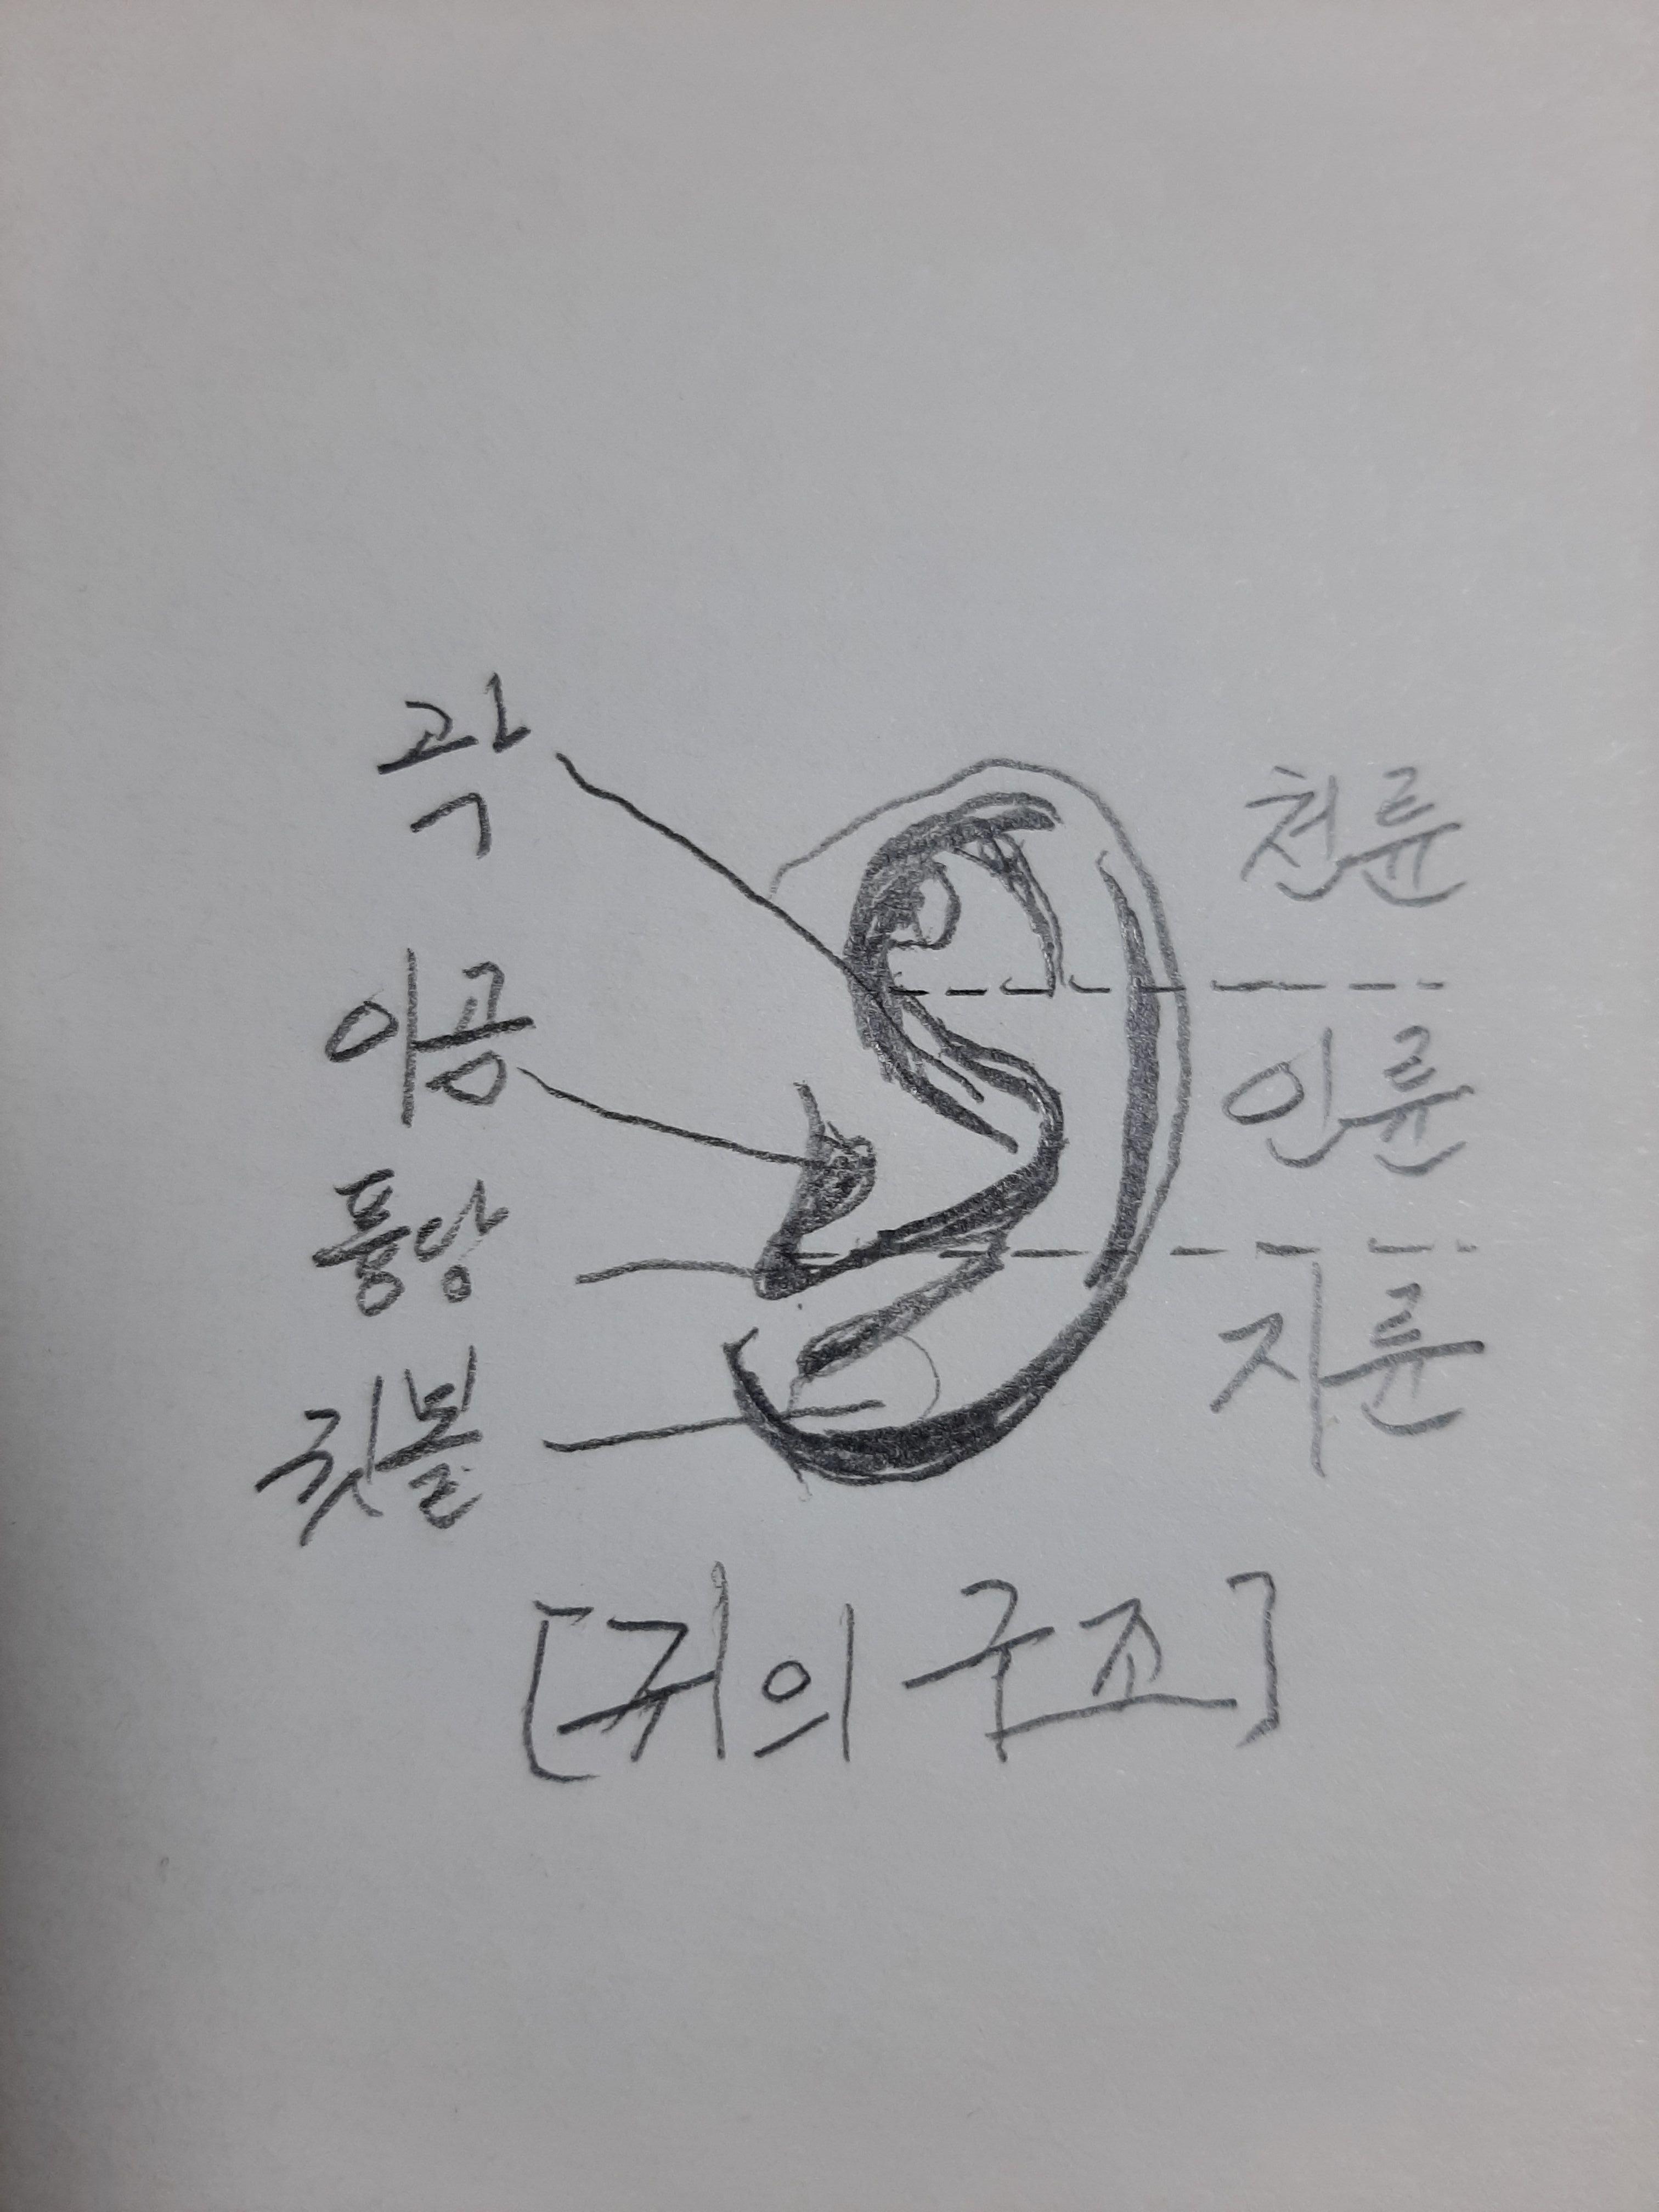 곽
이공
풍당
귓볼
천륜
인륜
지륜
[귀의 구조]